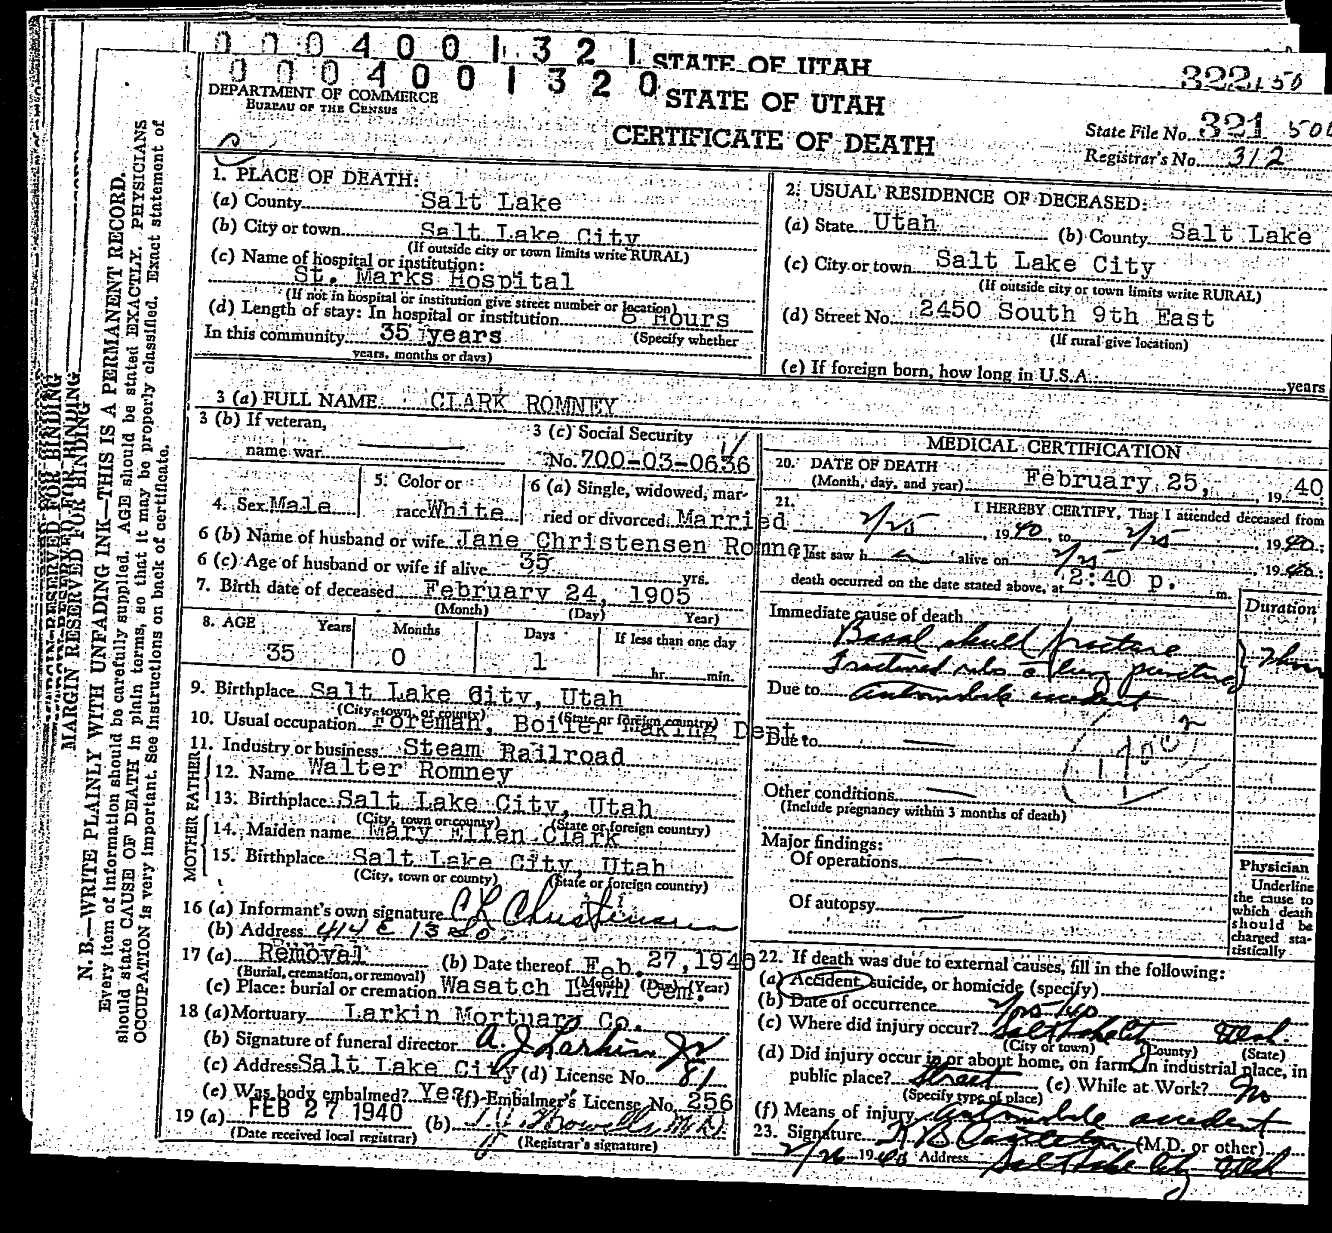 0004001321 STATE OF UTAH 322 50
0004001320 STATE OF UTAH
DEPARTMENT OF COMMERCE
BUREAU OF THE CENSUS
CERTIFICATE OF DEATH
State File No. 321 500
Registrar's No. 312
MARGIN RESERVED FOR BINDING
N. B.—WRITE PLAINLY WITH UNFADING INK—THIS IS A PERMANENT RECORD.
Every item of information should be carefully supplied. AGE should be stated EXACTLY. PHYSICIANS
should state CAUSE OF DEATH in plain terms, so that it may be properly classified. Exact statement of
OCCUPATION is very important. See Instructions on back of certificate.
1. PLACE OF DEATH:
(a) County Salt Lake
(b) City or town Salt Lake City
(If outside city or town limits write RURAL)
(c) Name of hospital or institution:
St. Marks Hospital
(If not in hospital or institution give street number or location)
(d) Length of stay: In hospital or institution 8 Hours
In this community 35 years (Specify whether
years, months or days)
2. USUAL RESIDENCE OF DECEASED:
(a) State Utah (b) County Salt Lake
(c) City or town Salt Lake City
(If outside city or town limits write RURAL)
(d) Street No. 2450 South 9th East
(If rural give location)
(e) If foreign born, how long in U.S.A. years
3 (a) FULL NAME CLARK ROMNEY
3 (b) If veteran,
name war
3 (c) Social Security
No. 700-03-0636
4. Sex Male
5. Color or
race White
6 (a) Single, widowed, mar-
ried or divorced. Married
6 (b) Name of husband or wife Jane Christensen Romney
6 (c) Age of husband or wife if alive 35 yrs.
7. Birth date of deceased February 24, 1905
(Month) (Day) Year)
8. AGE Years Months Days If less than one day
35 0 1 hr. min.
9. Birthplace Salt Lake City, Utah
(City, town, or county) (State or foreign country)
10. Usual occupation Foreman, Boiler Making Dept.
11. Industry or business Steam Railroad
FATHER
12. Name Walter Romney
13. Birthplace Salt Lake City, Utah
(City, town or county) (State or foreign country)
MOTHER
14. Maiden name Mary Ellen Clark
15. Birthplace Salt Lake City, Utah
(City, town or county) (State or foreign country)
16 (a) Informant's own signature C R Christensen
(b) Address 414 E 13 So.
17 (a) Removal (b) Date thereof Feb. 27, 1940
(Burial, cremation, or removal) (Month) (Day) (Year)
(c) Place: burial or cremation Wasatch Lawn Cem.
18 (a) Mortuary Larkin Mortuary Co.
(b) Signature of funeral director A. J. Larkin Jr
(c) Address Salt Lake City (d) License No. 81
(e) Was body embalmed? Yes (f) Embalmer's License No. 256
19 (a) FEB 27 1940 (b)
(Date received local registrar) (Registrar's signature)
MEDICAL CERTIFICATION
20. DATE OF DEATH
(Month, day, and year) February 25, 1940
21. I HEREBY CERTIFY, That I attended deceased from
2/25, 1940, to 2/25, 1940;
I last saw h alive on 2/25 1940;
death occurred on the date stated above, at 2:40 p. m.
Duration
Immediate cause of death
Basal skull fracture
Fractured ribs c lung puncture
Due to automobile accident
Due to
Other conditions
(Include pregnancy within 3 months of death)
Major findings:
Of operations
Of autopsy
Physician
Underline
the cause to
which death
should be
charged sta-
tistically
22. If death was due to external causes, fill in the following:
(a) Accident, suicide, or homicide (specify)
(b) Date of occurrence 2/25-40
(c) Where did injury occur? Salt Lake City Utah.
(City or town) (County) (State)
(d) Did injury occur in or about home, on farm, in industrial place, in
public place? Street (e) While at Work? No
(Specify type of place)
(f) Means of injury automobile accident
23. Signature (M.D. or other)
2/26 1940 Address Salt Lake City Utah